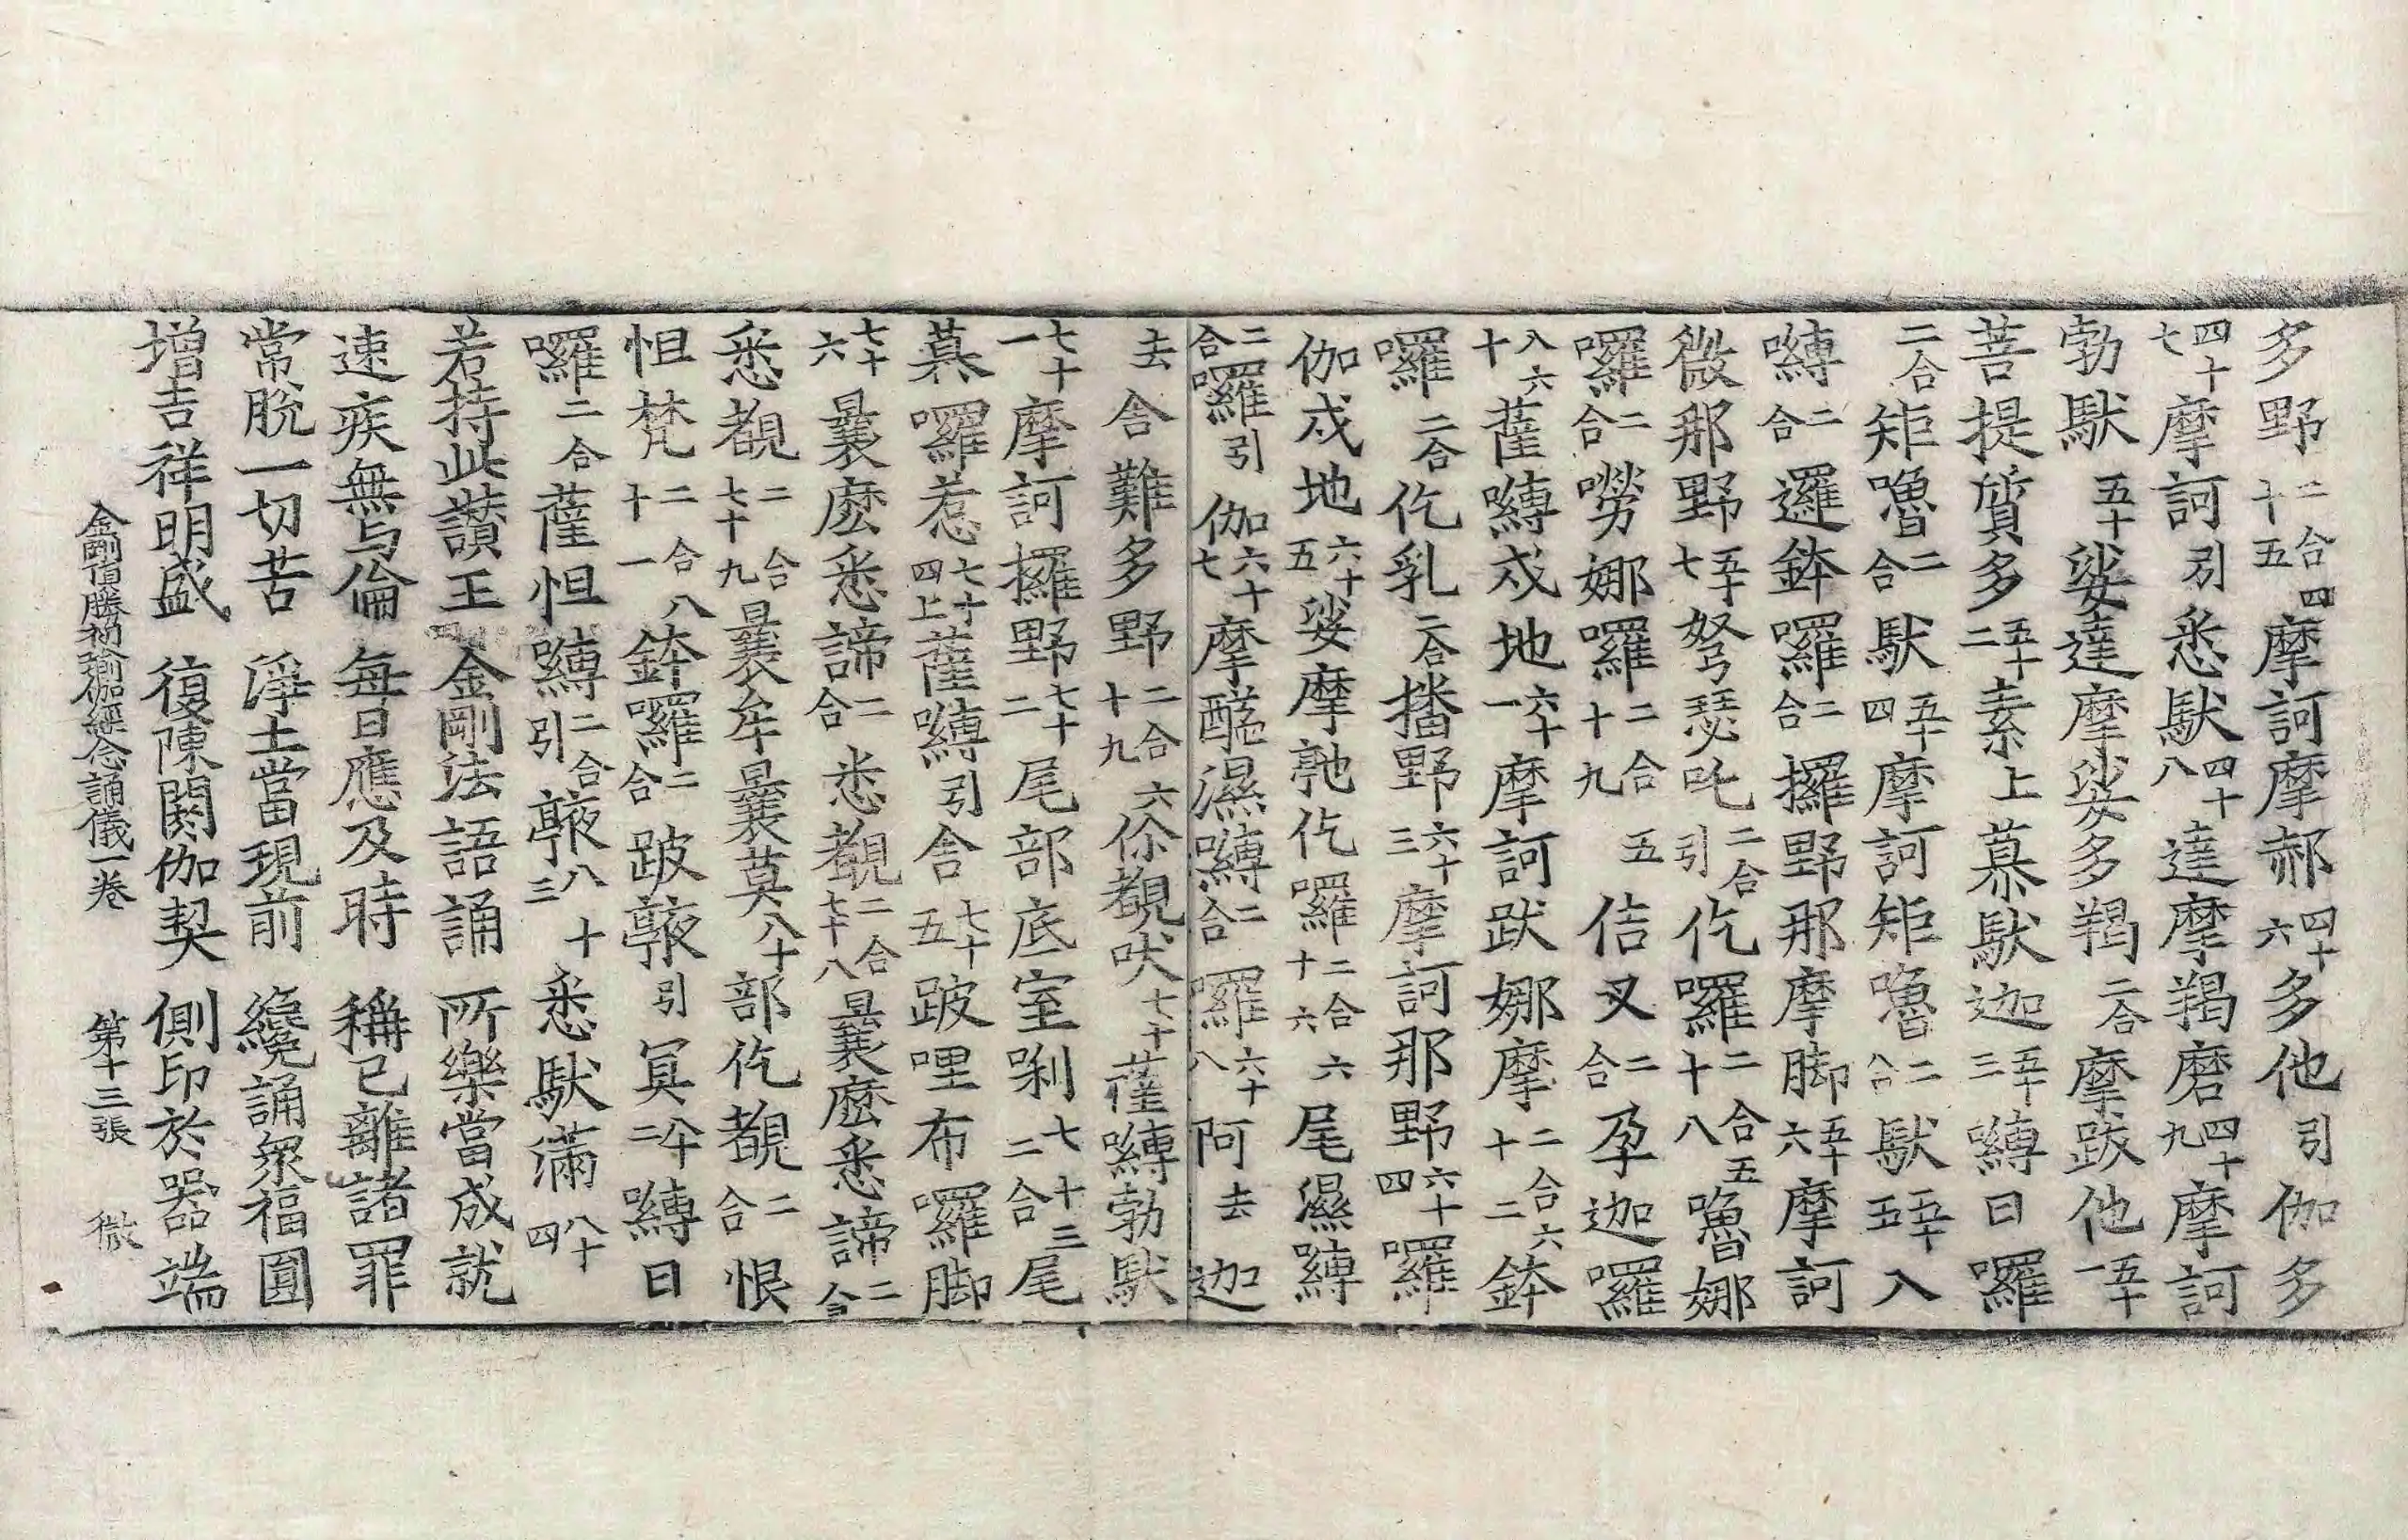 多野二合四十五摩訶摩郝四十六多他引伽多
四十七摩訶引悉馱四十八達摩羯磨四十九摩訶
勃馱五十娑達摩娑多羯二合摩跋他五十一
菩提質多五十二素上慕馱迦五十三嚩日囉
二合矩嚕二合馱五十四摩訶矩嚕二合馱五十五入
嚩二合邏鉢囉二合攞野那摩脚五十六摩訶
微那野五十七弩瑟吒二合引仡囉二合五十八嚕娜
囉二合嘮娜囉二合五十九佶叉二合孕迦囉
八六十薩嚩戍地六十一摩訶跋娜摩二合六十二鉢
囉二合仡乳二合播野六十三摩訶那野六十四囉
伽戍地六十五娑摩𠆧仡囉二合六十六尾濕嚩
二合囉引伽六十七摩醯濕嚩二合囉六十八阿去迦
去舍難多野二合六十九你覩吠七十薩嚩勃馱
七十一摩訶攞野七十二尾部底室唎二合七十三尾
慕囉惹七十四上薩嚩引舍七十五跛哩布囉脚
七十六曩麽悉諦二合悉覩二合七十八曩麽悉諦二合
悉覩二合七十九曩牟曩莫八十部仡覩二合恨
怛梵二合八十一鉢囉二合跛𠽾引冥八十二嚩日
囉二合薩怛嚩二合引𠽾八十三悉馱滿八十四
若持此讃王　金剛法語誦　所樂當成就
速疾無与倫　每日應及時　稱已離諸罪
常脫一切苦　淨土當現前　纔誦衆福圓
增吉祥明盛　復陳閼伽契　側印於器端
金剛頂勝初瑜伽經念誦儀一卷　第十三張　微